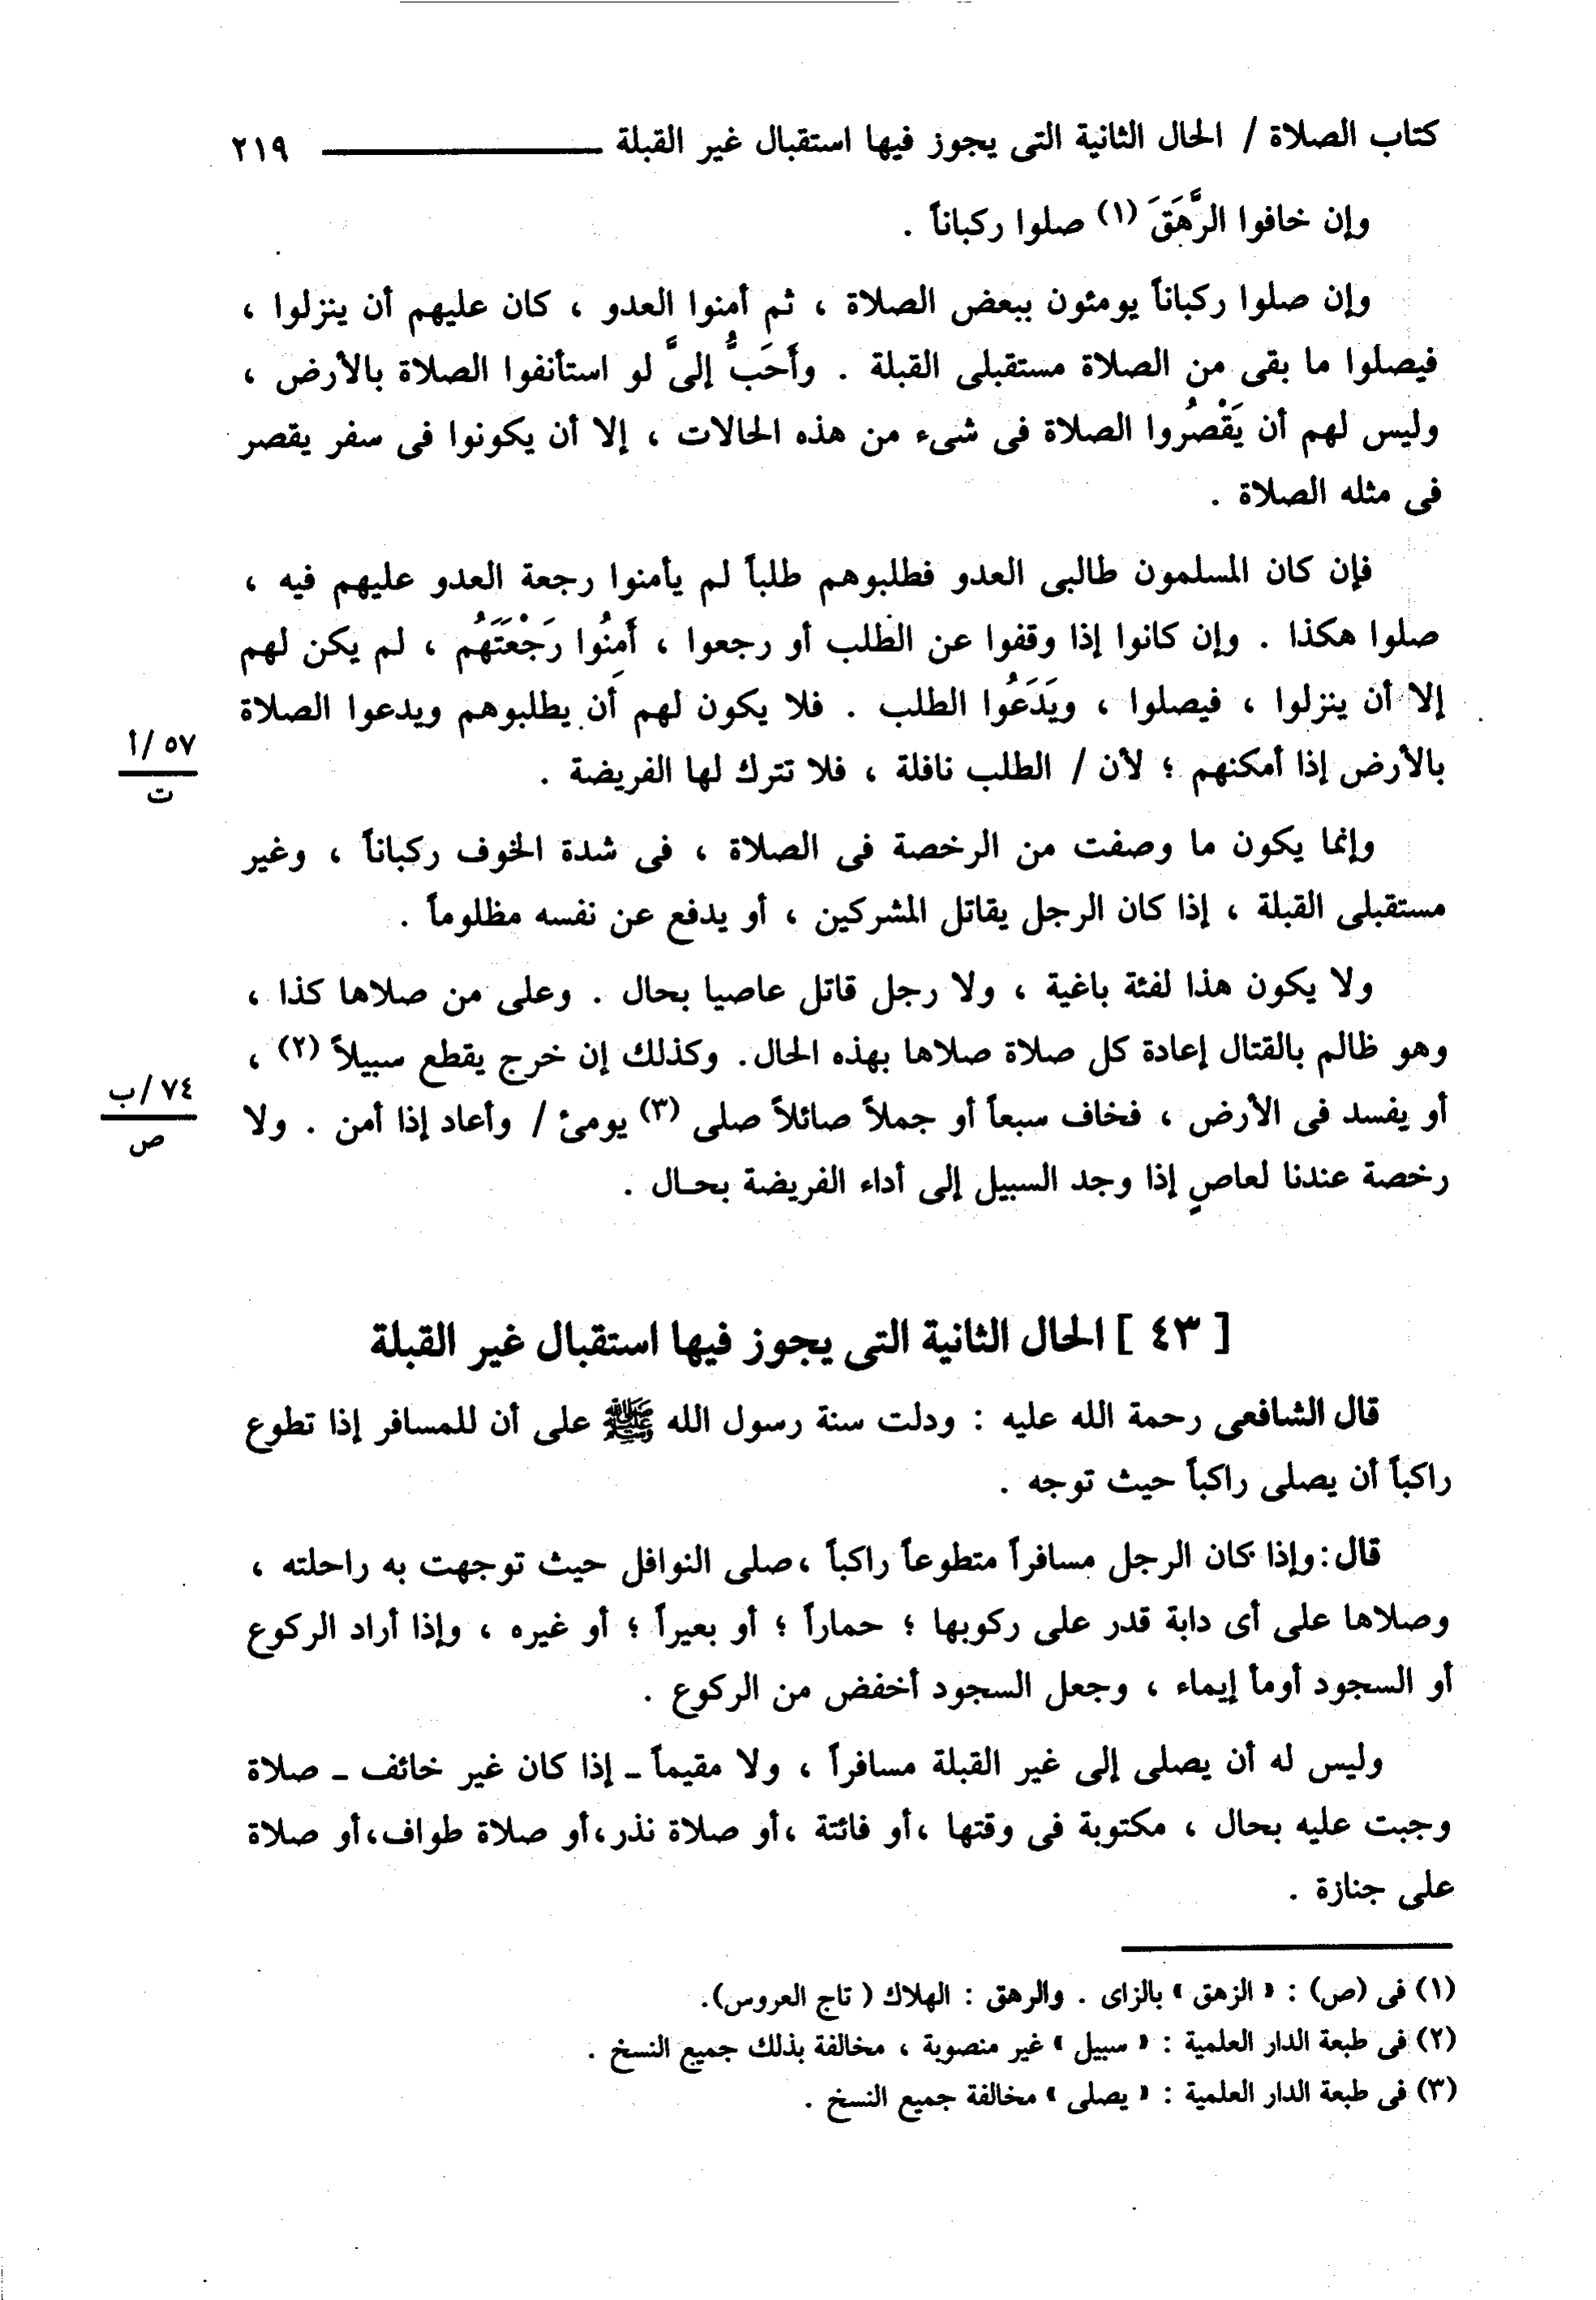 كتاب الصلاة / الحال الثانية التى يجوز فيها استقبال غير القبلة ٢١٩
وإن خافوا الرَّهَقَ (١) صلوا ركباناً .
وإن صلوا ركباناً يومئون ببعض الصلاة ، ثم أمنوا العدو ، كان عليهم أن ينزلوا ،
فيصلوا ما بقى من الصلاة مستقبلى القبلة . وأَحَبُّ إلىَّ لو استأنفوا الصلاة بالأرض ،
وليس لهم أن يَقْصُروا الصلاة فى شىء من هذه الحالات ، إلا أن يكونوا فى سفر يقصر
فى مثله الصلاة .
فإن كان المسلمون طالبى العدو فطلبوهم طلباً لم يأمنوا رجعة العدو عليهم فيه ،
صلوا هكذا . وإن كانوا إذا وقفوا عن الطلب أو رجعوا ، أَمِنُوا رَجْعَتَهُم ، لم يكن لهم
إلا أن ينزلوا ، فيصلوا ، ويَدَعُوا الطلب . فلا يكون لهم أن يطلبوهم ويدعوا الصلاة
بالأرض إذا أمكنهم ؛ لأن / الطلب نافلة ، فلا تترك لها الفريضة .
٥٧/أ
ت
وإنما يكون ما وصفت من الرخصة فى الصلاة ، فى شدة الخوف ركباناً ، وغير
مستقبلى القبلة ، إذا كان الرجل يقاتل المشركين ، أو يدفع عن نفسه مظلوماً .
ولا يكون هذا لفئة باغية ، ولا رجل قاتل عاصيا بحال . وعلى من صلاها كذا ،
وهو ظالم بالقتال إعادة كل صلاة صلاها بهذه الحال. وكذلك إن خرج يقطع سبيلاً (٢) ،
أو يفسد فى الأرض ، فخاف سبعاً أو جملاً صائلاً صلى (٣) يومئ / وأعاد إذا أمن . ولا
٧٤/ب
ص
رخصة عندنا لعاصٍ إذا وجد السبيل إلى أداء الفريضة بحـال .
[ ٤٣ ] الحال الثانية التى يجوز فيها استقبال غير القبلة
قال الشافعى رحمة الله عليه : ودلت سنة رسول الله ﷺ على أن للمسافر إذا تطوع
راكباً أن يصلى راكباً حيث توجه .
قال: وإذا كان الرجل مسافراً متطوعاً راكباً ،صلى النوافل حيث توجهت به راحلته ،
وصلاها على أى دابة قدر على ركوبها ؛ حماراً ؛ أو بعيراً ؛ أو غيره ، وإذا أراد الركوع
أو السجود أومأ إيماء ، وجعل السجود أخفض من الركوع .
وليس له أن يصلى إلى غير القبلة مسافراً ، ولا مقيماً ـ إذا كان غير خائف ـ صلاة
وجبت عليه بحال ، مكتوبة فى وقتها ،أو فائتة ،أو صلاة نذر،أو صلاة طواف،أو صلاة
على جنازة .
(١) فى (ص) : « الزهق » بالزاى . والرهق : الهلاك ( تاج العروس).
(٢) فى طبعة الدار العلمية : « سبيل » غير منصوبة ، مخالفة بذلك جميع النسخ .
(٣) فى طبعة الدار العلمية : « يصلى » مخالفة جميع النسخ .